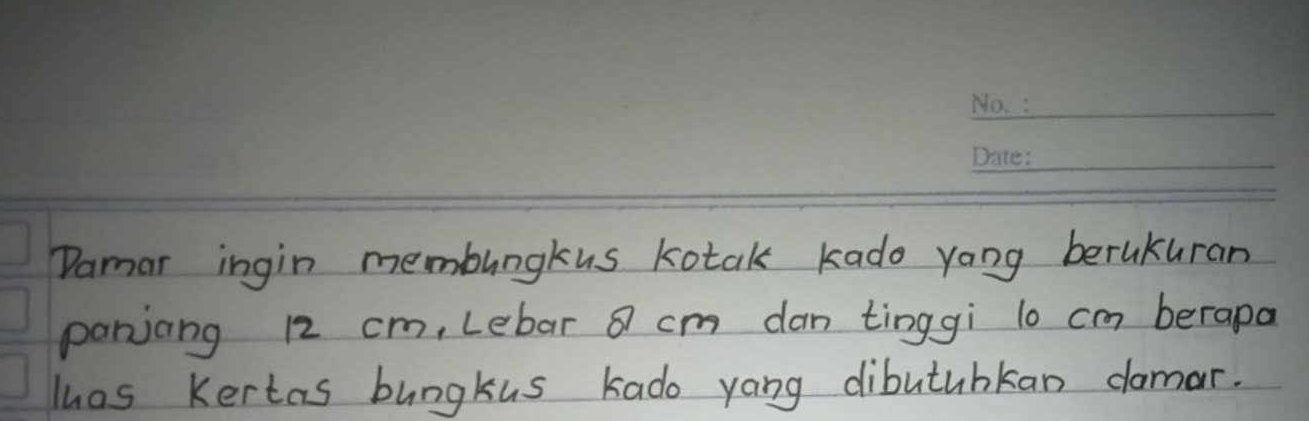 No. :
Date:
Damar ingin membungkus kotak kado yang berukuran
panjang 12 cm, Lebar 8 cm dan tinggi 10 cm berapa
luas Kertas bungkus kado yang dibutuhkan damar.